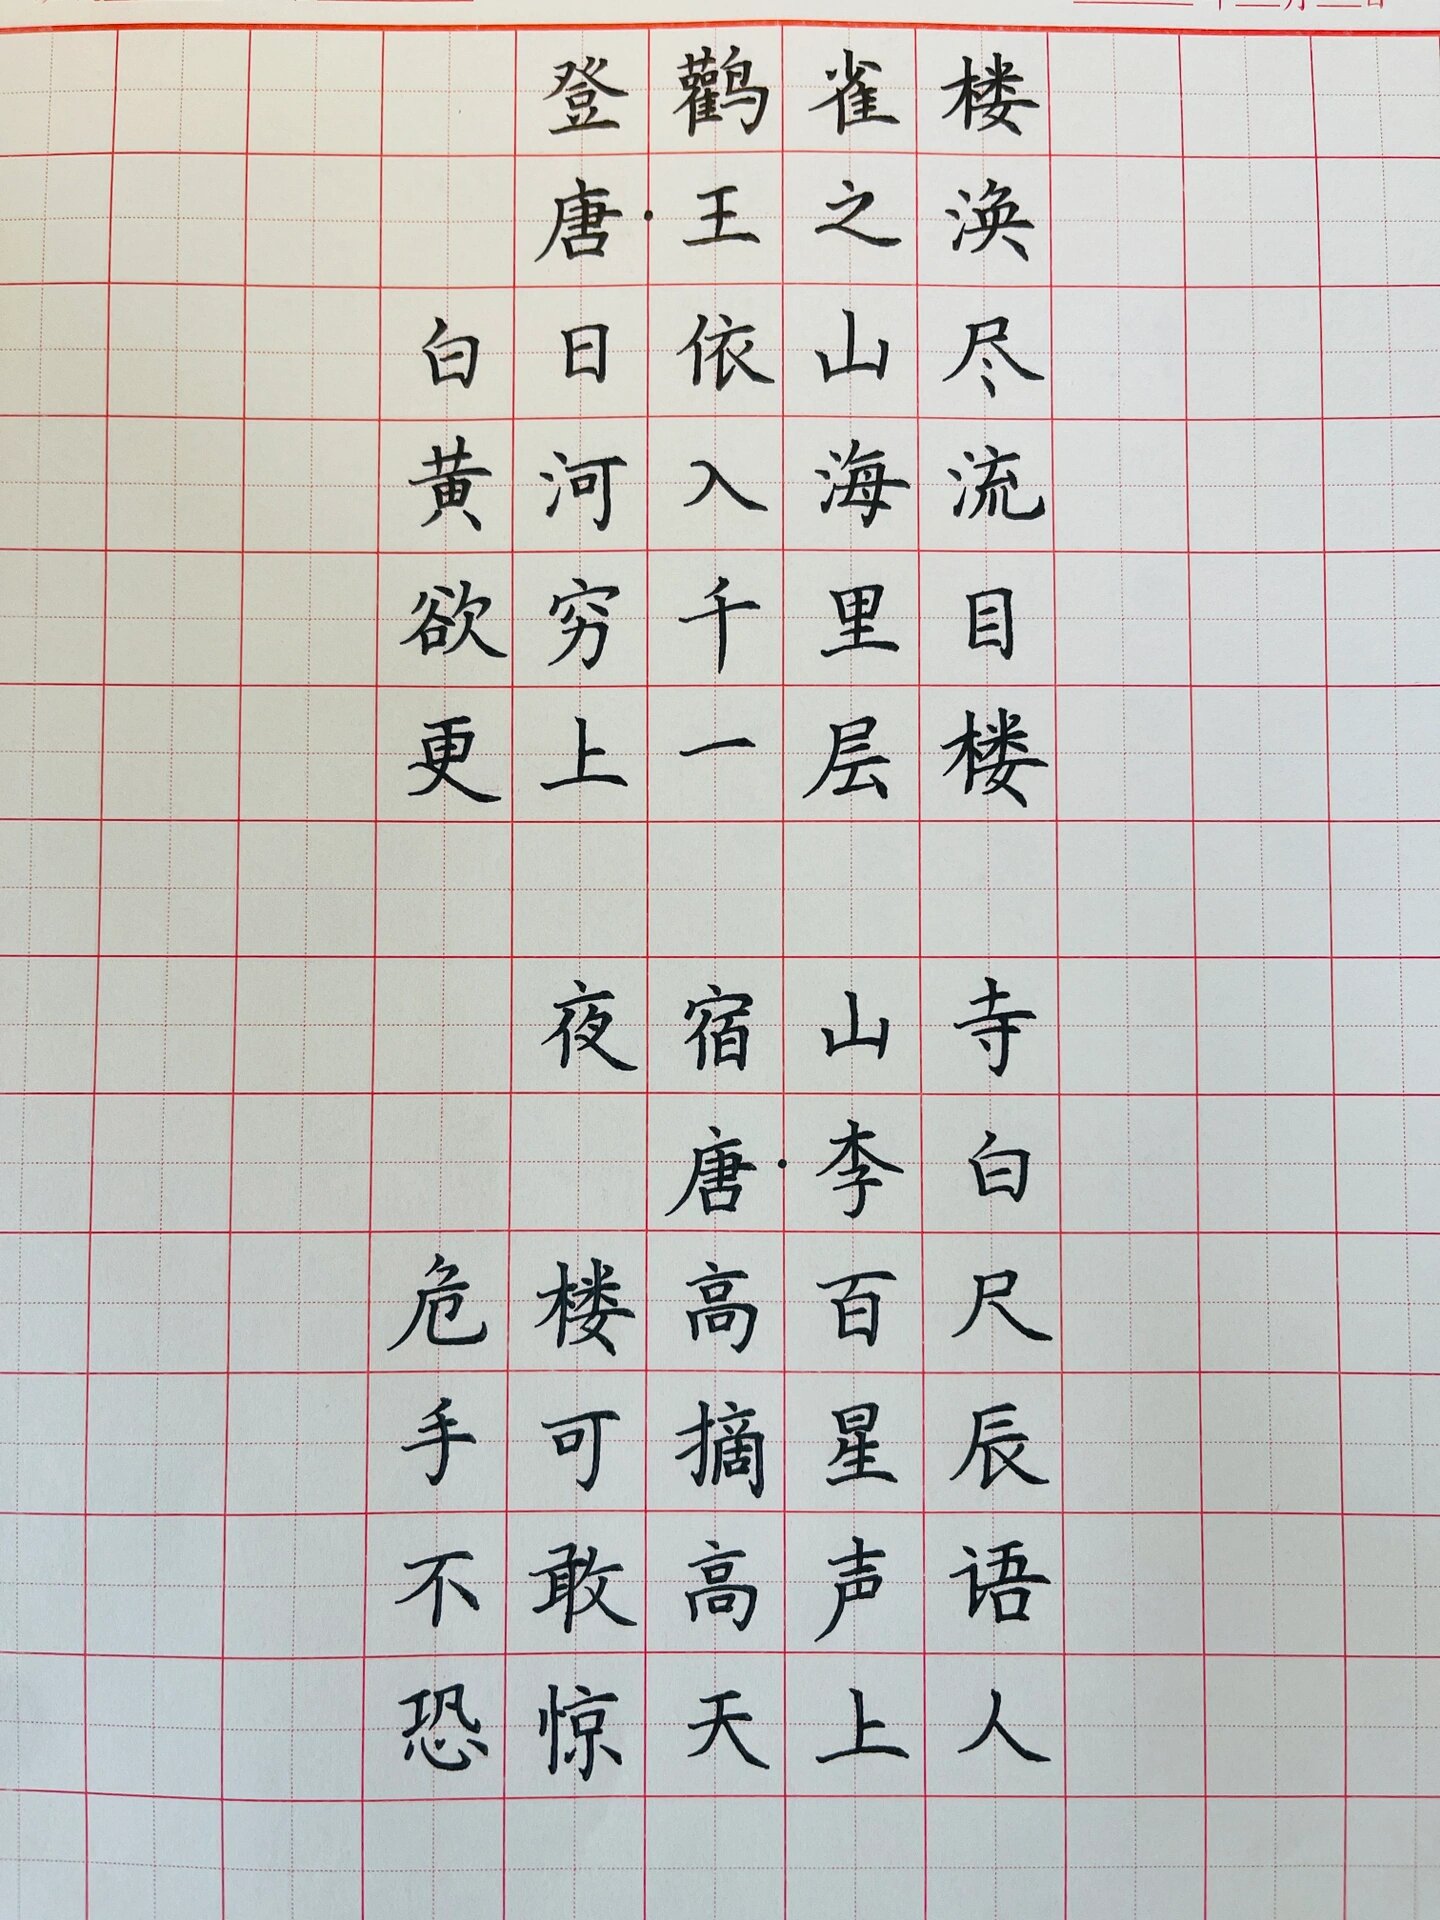 登鹳雀楼
唐·王之涣
白日依山尽
黄河入海流
欲穷千里目
更上一层楼
夜宿山寺
唐·李白
危楼高百尺
手可摘星辰
不敢高声语
恐惊天上人